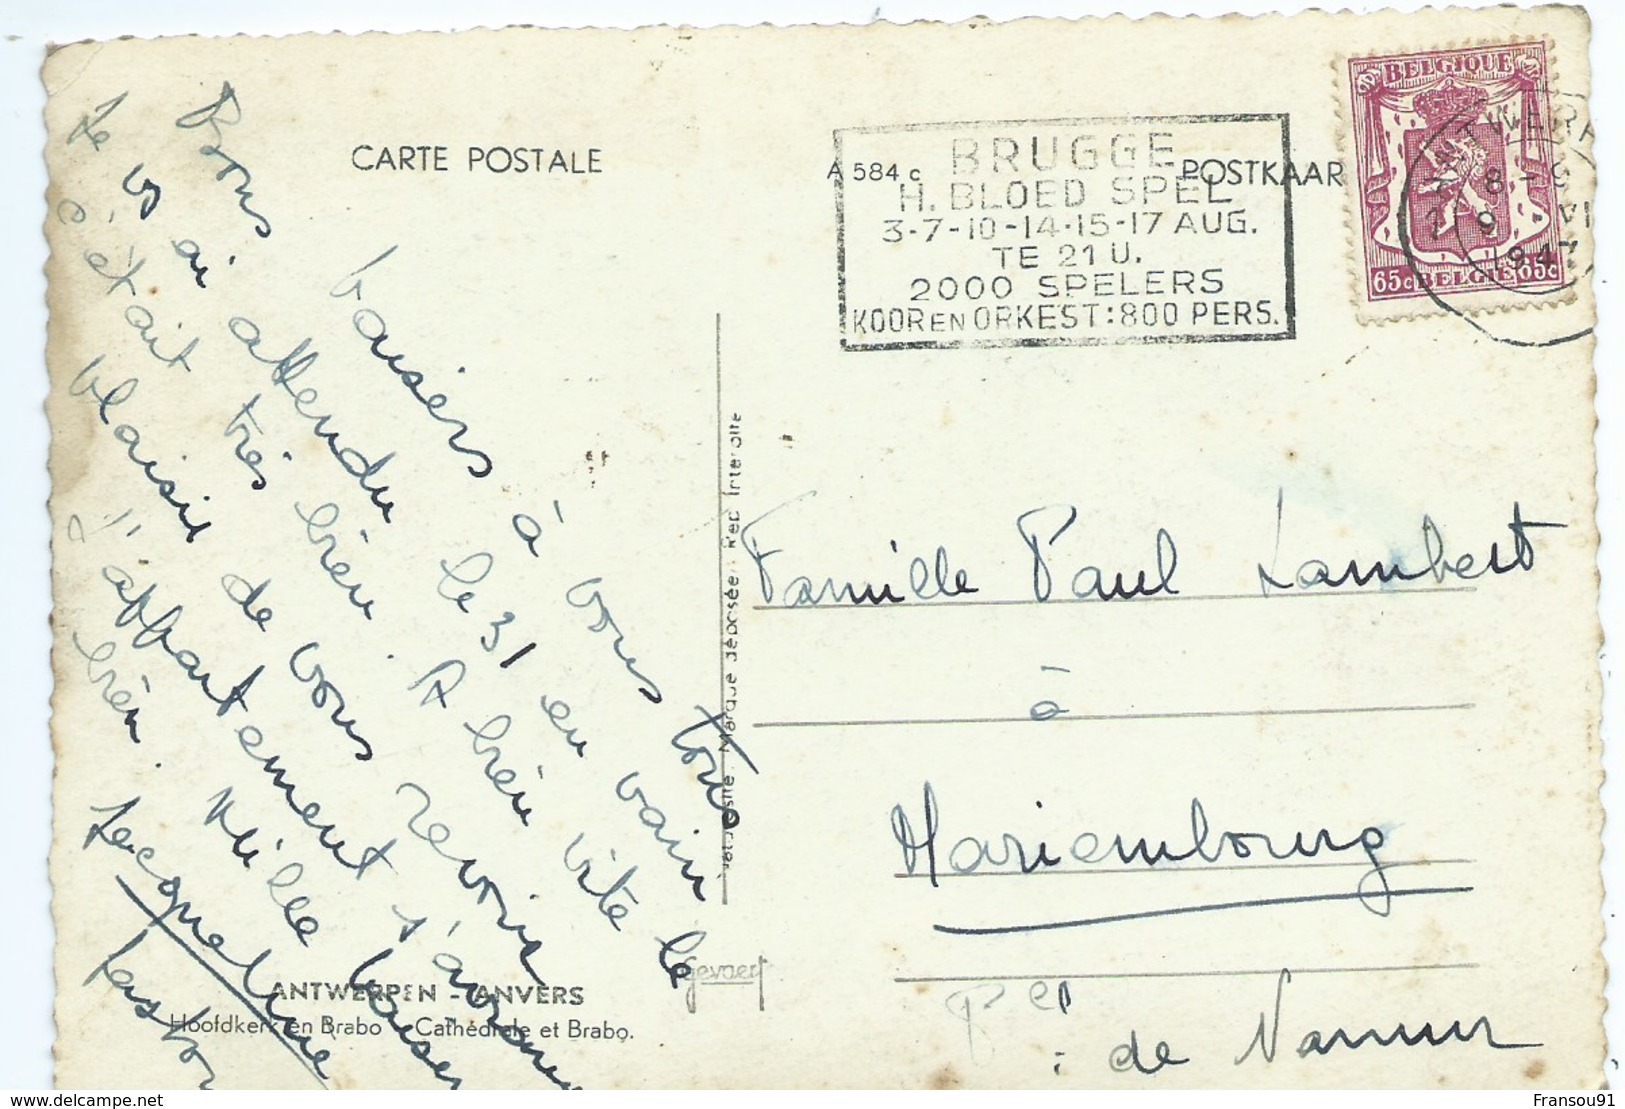 CARTE POSTALE
A 584 c
POSTKAAR
BRUGGE
H. BLOED SPEL
3-7-10-14-15-17 AUG.
TE 21 U.
2000 SPELERS
KOOR EN ORKEST: 800 PERS.
BELGIQUE
65c BELGIE 65c
8-
9 VI
1947
Bons baisers à vous tous
Je vs ai attendu le 31 en vain
c'était très bien. A bien vite le
plaisir de vous revoir
l'appartement s'avance
bien. Mille baisers
Jacqueline
Marque déposée. Rep. Interdite
Famille Paul Lambert
à
Mariembourg
Pce
de Namur
Gevaert
ANTWERPEN - ANVERS
Hoofdkerk en Brabo - Cathédrale et Brabo.
delcampe.net
Fransou91